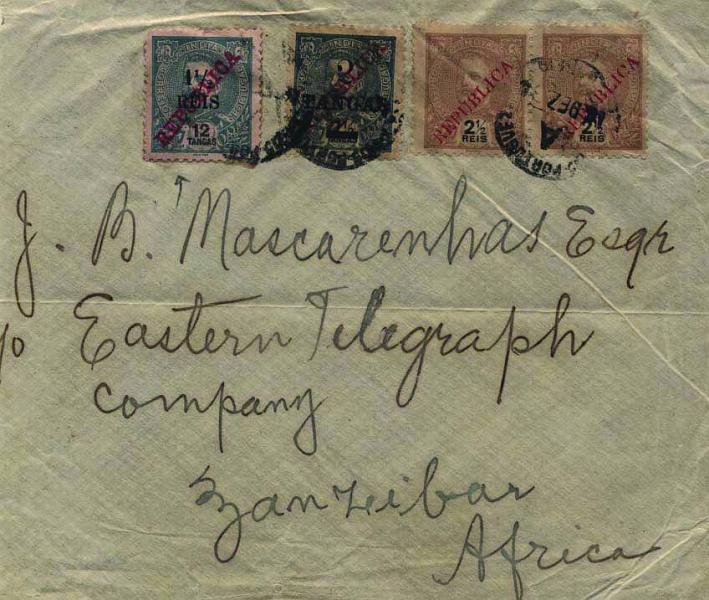 INDIA INDIA INDIA INDIA
1½ 2
REIS TANGAS
REPUBLICA REPUBLICA REPUBLICA
12 2½ 2½
TANGAS REIS REIS
DEZ
J. B. Mascarenhas Esqr
c/o Eastern Telegraph
Company
Zanzeibar
Africa